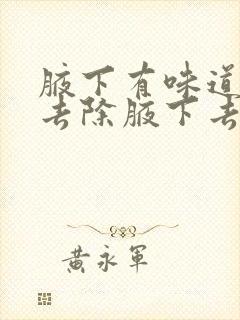 腋下有味道
去除腋下去
黄永军